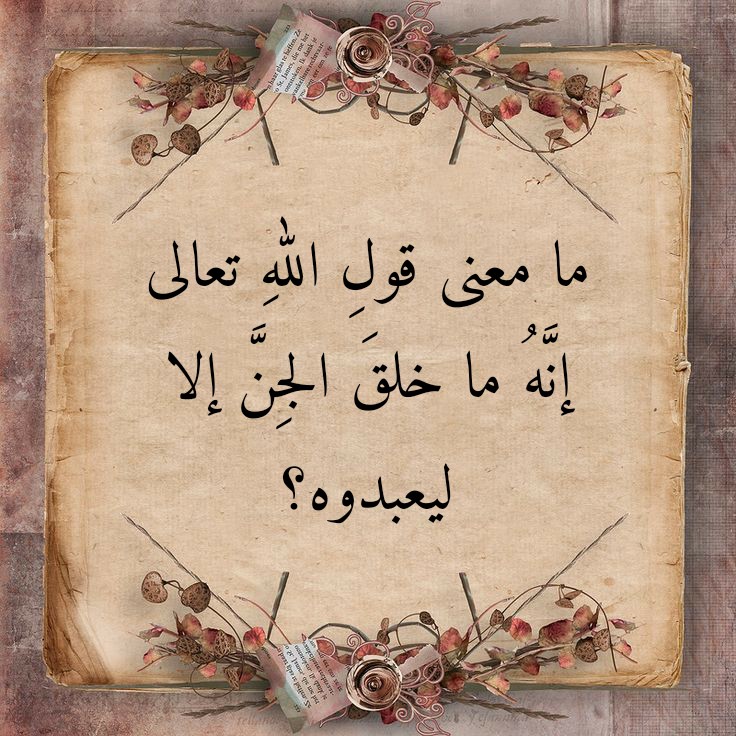 ما معنى قولِ اللهِ تعالى
إنَّهُ ما خلقَ الجِنَّ إلا
ليعبدوه؟